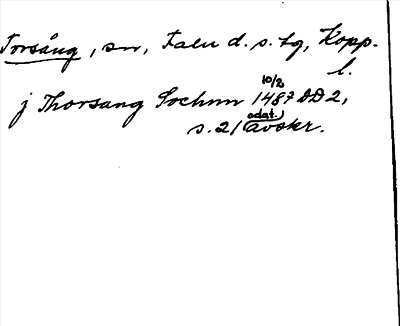 Torsång, sn, Falu d. s. tg, Kopp.
l.
j Thorsang Sochnn 10/2 1487 DD 2,
s. 21 odat. avskr.